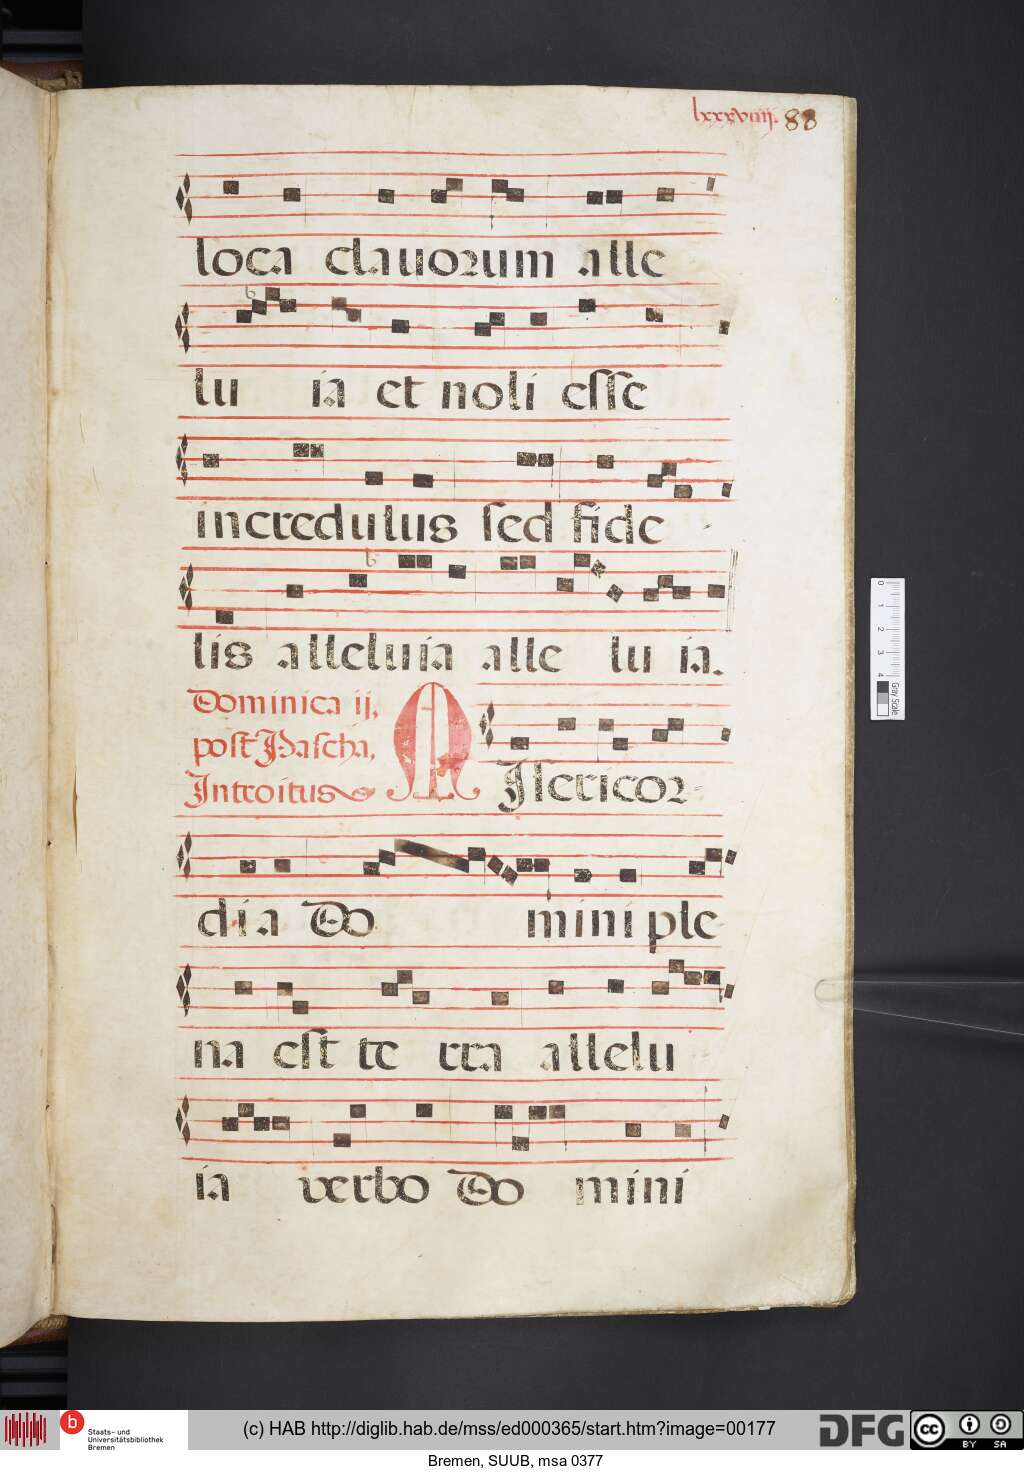 lxxxviiij. 88
loca clauorum alle
lu ia et noli esse
incredulus sed fide
lis alleluia alle lu ia.
Dominica ij.
post Pascha,
Introitus
MIsericor
dia Do mini ple
na est te rra allelu
ia verbo Do mini
0 1 2 3 4
Gray Scale
b Staats- und
Universitätsbibliothek
Bremen
(c) HAB http://diglib.hab.de/mss/ed000365/start.htm?image=00177
DFG
cc BY SA
Bremen, SUUB, msa 0377